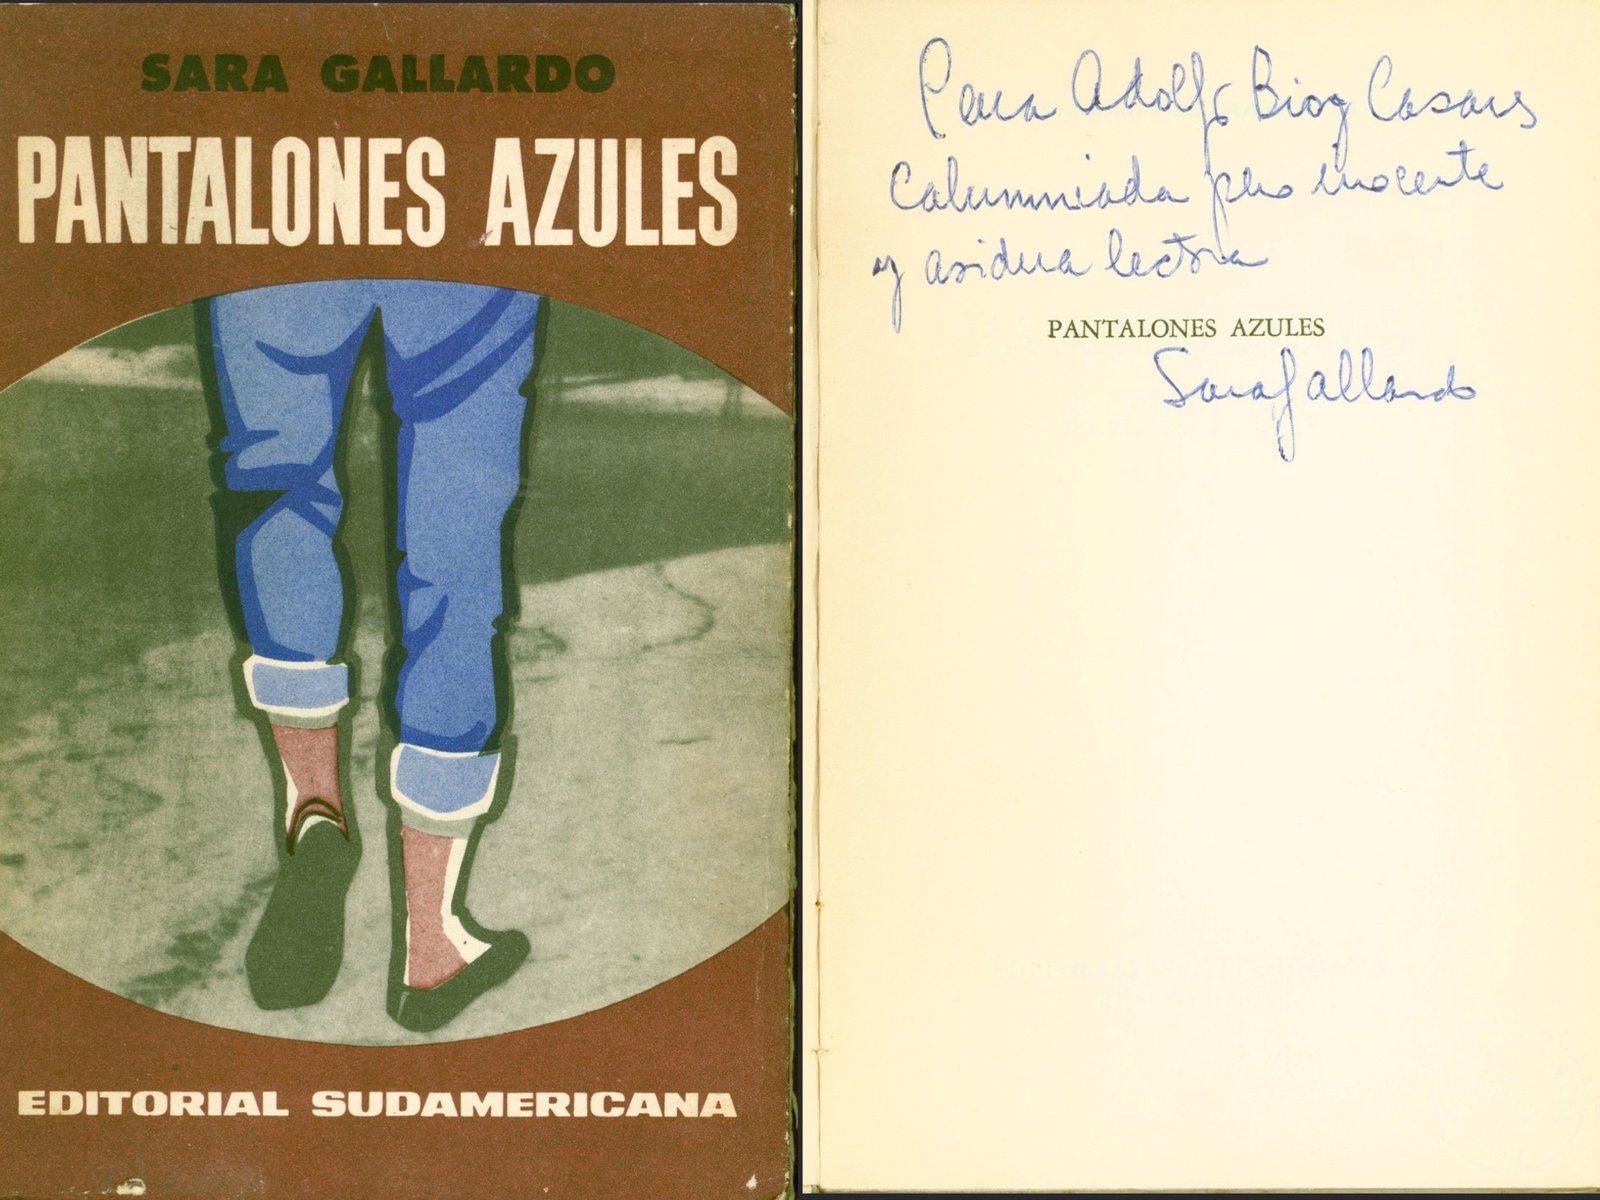 SARA GALLARDO
PANTALONES AZULES
EDITORIAL SUDAMERICANA
Para Adolfo Bioy Casares
Calumniada pero inocente
y asidua lectora
PANTALONES AZULES
Sara Gallardo